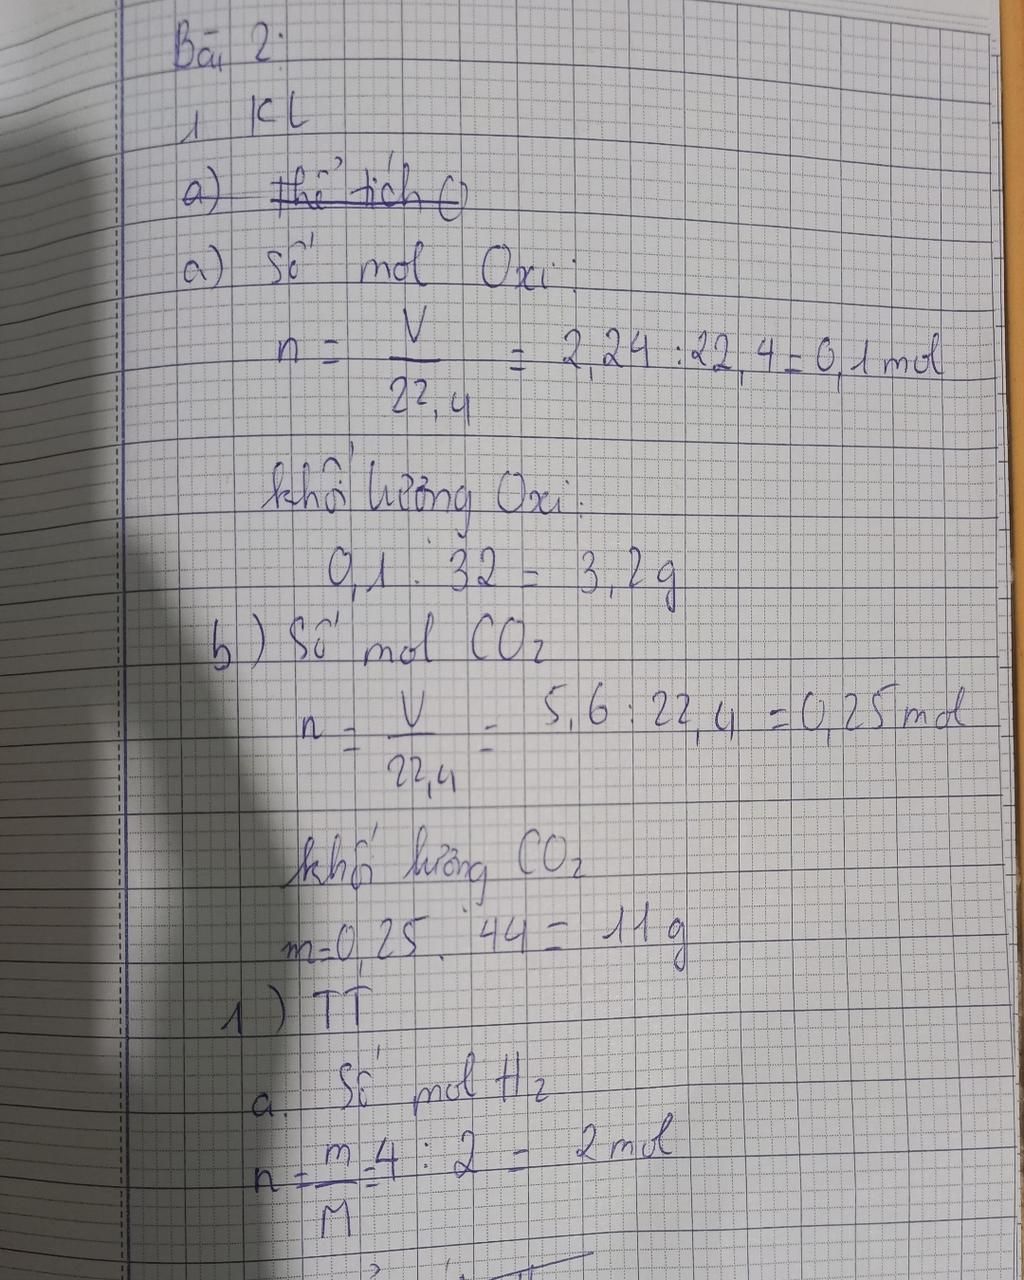 Bài 2:
1 KL
a) thể tích O
a) Số mol Oxi:
n = V / 22,4 = 2,24 : 22,4 = 0,1 mol
khối lượng Oxi:
0,1 . 32 = 3,2 g
b) Số mol CO2
n = V / 22,4 = 5,6 : 22,4 = 0,25 mol
khối lượng CO2
m = 0,25 . 44 = 11 g
1) TT
a. Số mol H2
n = m / M = 4 : 2 = 2 mol